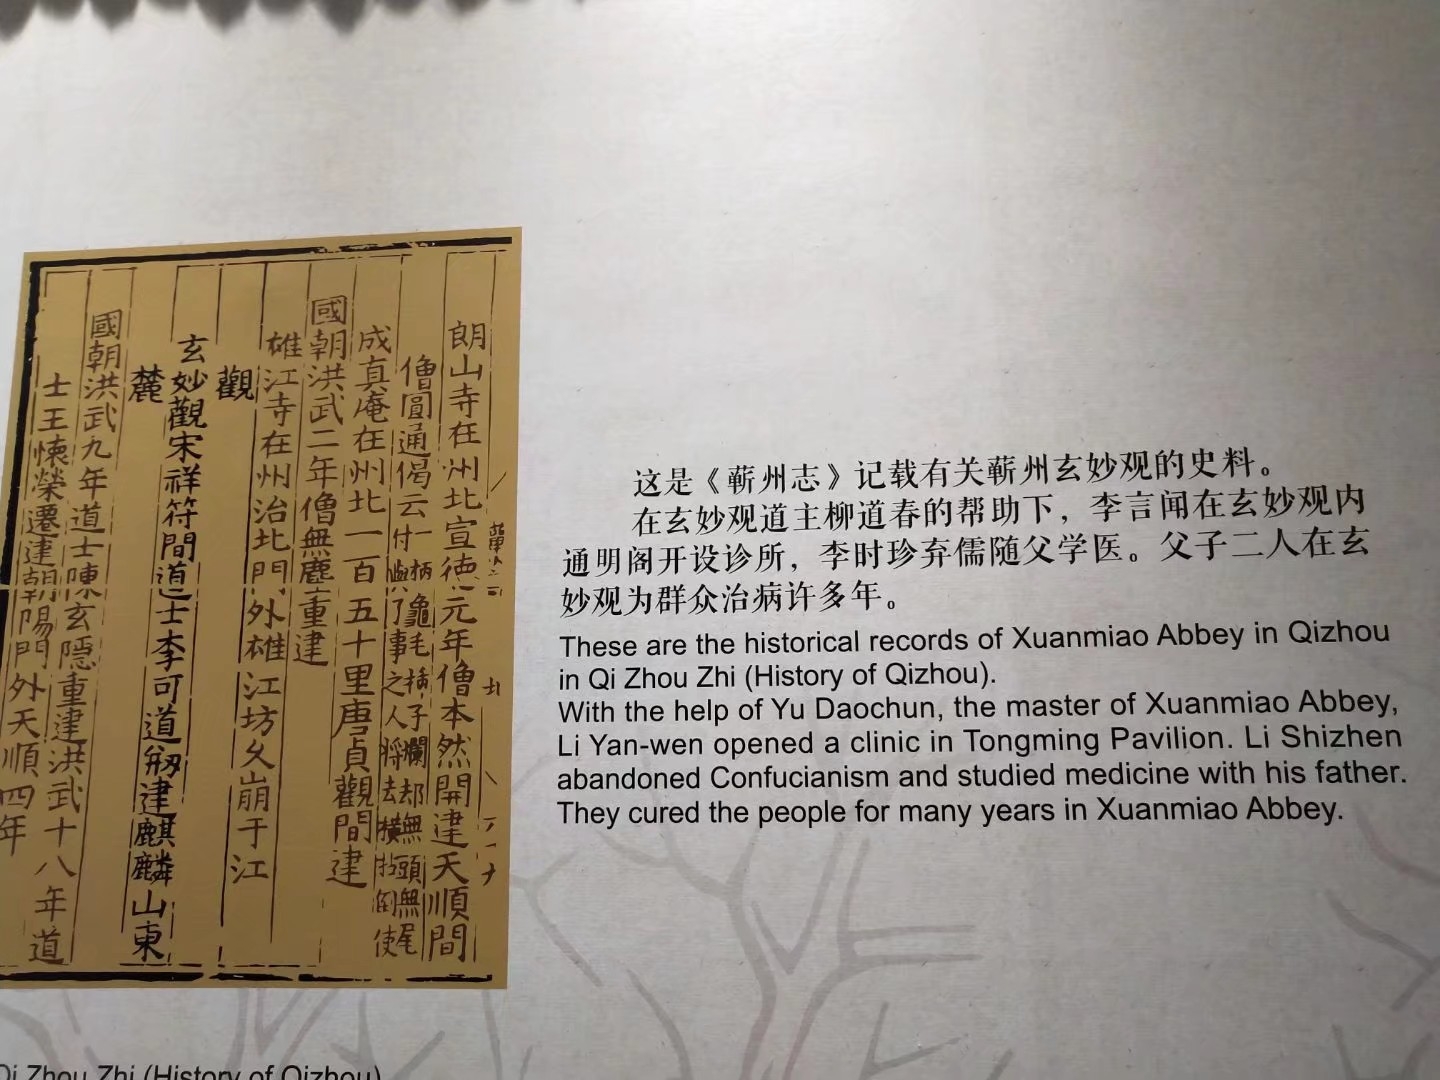 朗山寺在州北宣徳元年僧本然開建天順間
僧圓通偈云一柄龜毛掃子欄却無頭無尾
付與了事之人將去橫拈倒使
成真庵在州北一百五十里唐貞觀間建
國朝洪武二年僧無塵重建
雄江寺在州治北門外雄江坊久崩于江
觀
玄妙觀宋祥符間道士李可道剏建麒麟山東
麓
國朝洪武九年道士陳玄隱重建洪武十八年道
士王懐榮遷建朝陽門外天順四年
这是《蕲州志》记载有关蕲州玄妙观的史料。
在玄妙观道主柳道春的帮助下，李言闻在玄妙观内
通明阁开设诊所，李时珍弃儒随父学医。父子二人在玄
妙观为群众治病许多年。
These are the historical records of Xuanmiao Abbey in Qizhou
in Qi Zhou Zhi (History of Qizhou).
With the help of Yu Daochun, the master of Xuanmiao Abbey,
Li Yan-wen opened a clinic in Tongming Pavilion. Li Shizhen
abandoned Confucianism and studied medicine with his father.
They cured the people for many years in Xuanmiao Abbey.
Qi Zhou Zhi (History of Qizhou)